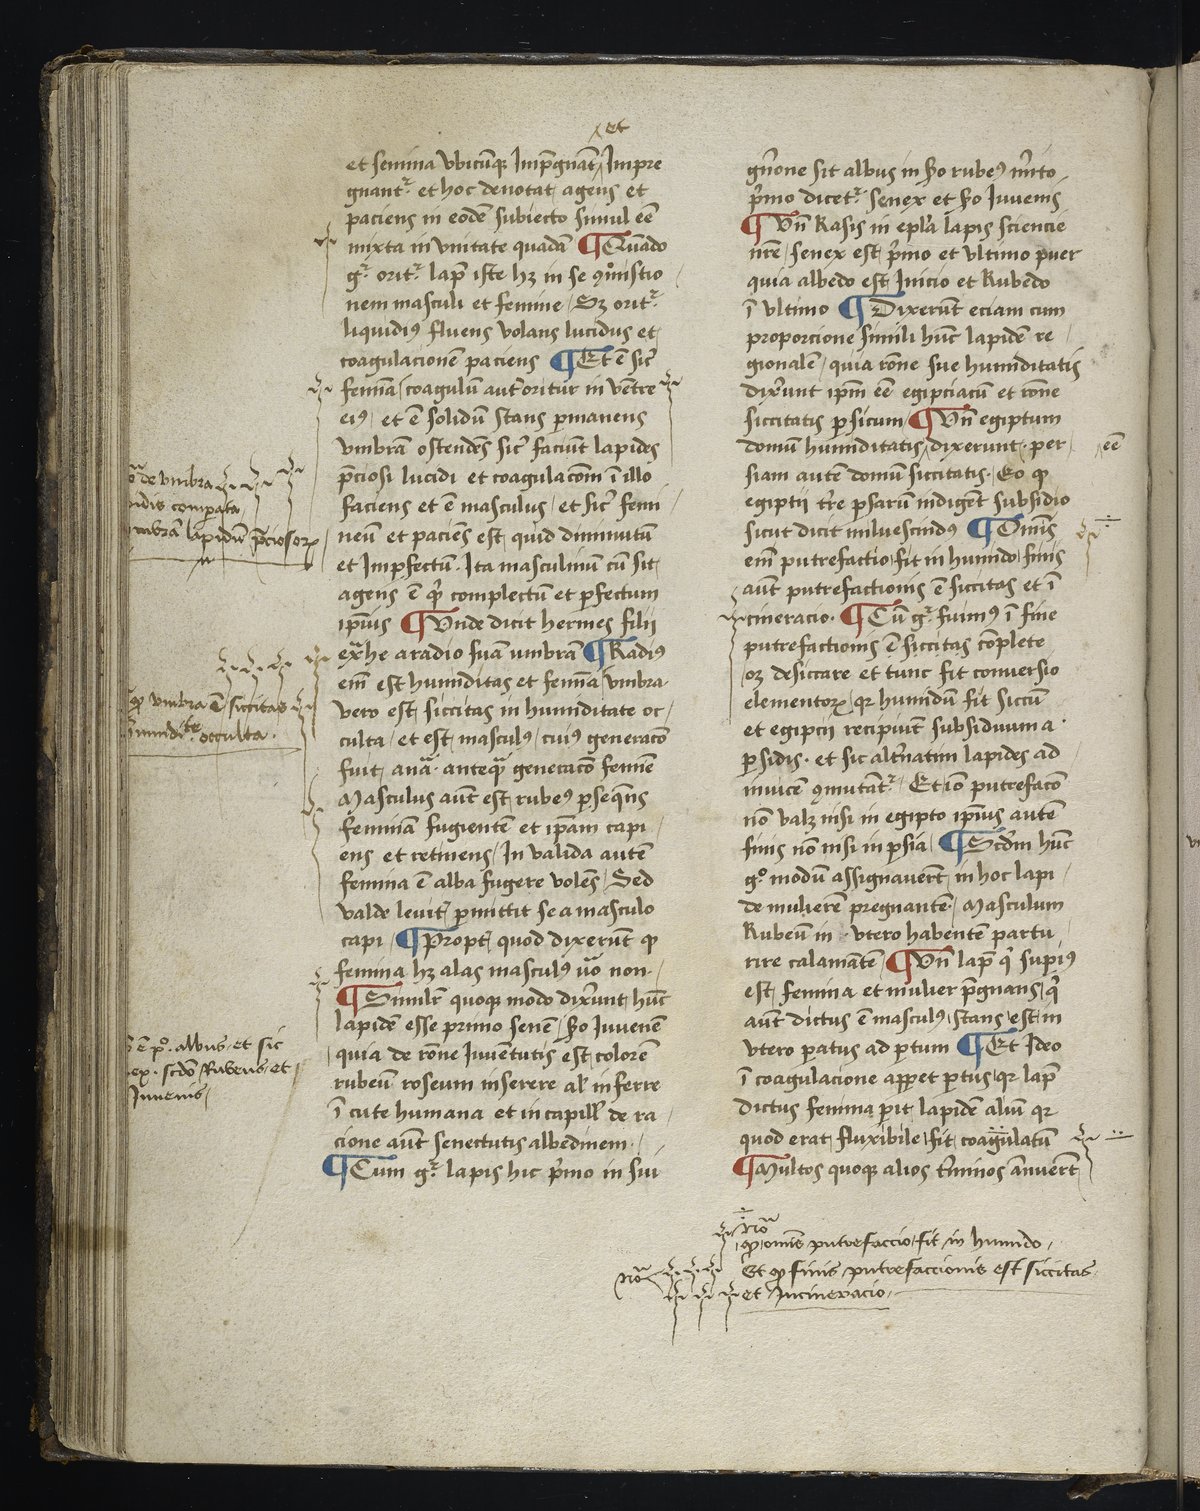 et
et semina vbicūq̄ Imp̄gnāt Impre
gnantᷣ et hoc denotat agens et
paciens in eodē subiecto simul eē
mixta in vnitate quadā ¶ Quādo
gᷣ oritᷣ lap̄ iste hꝫ in se ꝯmistio
nem masculi et femine Sꝫ oritᷣ
liquidꝰ fluens volans lucidus et
coagulacionē paciens ¶ Et ē sic̄
femīa coagulū aut̄ oritur in vētre
eiꝰ et ē solidū stans ꝑmanens
vmbrā ostendēs sic̄ faciūt lapides
p̄ciosi lucidi et coagulacōm ī illo
faciens et ē masculus et sic̄ femi
neū et paciēs est quid diminutū
et Imꝑfectū . Ita masculinū cū sit
agens ē qͥ complectū et ꝑfectum
ip̄ius ¶ Vnde dicit hermes filii
ext̄he a radio suā umbrā ¶ Radiꝰ
em̄ est humiditas et femīa vmbra
vero est siccitas in humiditate oc
culta et est masculꝰ cuiꝰ generacō
fuit an̄a anteq̄ generacō femīe
Masculus aūt est rubeꝰ ꝑseqn̄s
feminā fugientē et ip̄am capi
ens et retinens In valida autē
femina ē alba fugere volēs Sed
valde leuit̄ ꝑmittit se a masculo
capi ¶ Propt̄ quod dixerūt ꝙ
femina hꝫ alas masculꝰ v̄o non
¶ Simil̄r quoqꝫ modo dix̄unt hūc
lapidē esse primo senē s̄o Iuuenē
quia de rōne iuuētutis est colorē
rubeū roseum inserere al̄ inferre
ī cute humana et in capill̄ de ra
cione aūt senectutis albedinem
¶ Cum gᷣ lapis hic pͥmo in sui
gn̄one sit albus in s̄o rubeꝰ m̄ito
pͥmo dicetᷣ senex et s̄o Iuuenis
¶ Vn̄ Rasis in ep̄la lapis sciencie
nr̄e senex est pͥmo et vltimo puer
quia albedo est Inicio et Rubedo
ī vltimo ¶ Dixerūt eciam cum
proporcione simili hūc lapidē re
gionalē quia rōne sue humiditatis
dix̄unt ip̄m eē egipciacū et rōne
siccitatis ꝑsicum ¶ Vn̄ egiptum
domū humiditatis dixerunt . per
eē
siam autē domū siccitatis . Eo ꝙ
egiptii tr̄e ꝑsarū indigēt subsidio
sicut dicit miluescindꝰ ¶ Omīs
em̄ putrefactio fit in humido finis
aūt putrefactionis ē siccitas et ī
cineracio . ¶ Cū gᷣ fuimꝰ ī fine
putrefactionis ē siccitas cōplete
oꝫ desiccare et tunc fit conuersio
elementoꝝ qr̄ humidū fit siccū
et egipcii recipiūt subsidium a
ꝑsidis . et sic alt̄natim lapides ad
inuicē ꝯmutātᷣ Et iō putrefacō
nō valꝫ nisi in egipto ip̄ius autē
finis nō nisi in ꝑsia ¶ Scd̄m hūc
gͦ modū assignauer̄t in hoc lapi
de mulierē pregnantē Masculum
Rubeū in vtero habentē partu
rire calamātē ¶ Vn̄ lap̄ qͥ suꝑiꝰ
est femina et mulier p̄gnans qͥ
aūt dictus ē masculꝰ stans est in
vtero ꝑatus ad ꝑtum ¶ Et Ideo
ī coagulacione apꝑet ꝑtus qr̄ lap̄
dictus femina ꝑit lapidē aliū qr̄
quod erat fluxibile fit coagulatū
¶ Multos quoqꝫ alios t̄minos
de vmbra
vmbrā lapidū p̄ciosoꝝ
ꝙ vmbra ē siccitas
occulta .
albus et sic
scdō Rubeus et
Iuuenis
Nōª
ꝙ omīs putrefaccio fit in humido
Nōª
Et ꝙ finis putrefaccionis est siccitas
et Incineracio